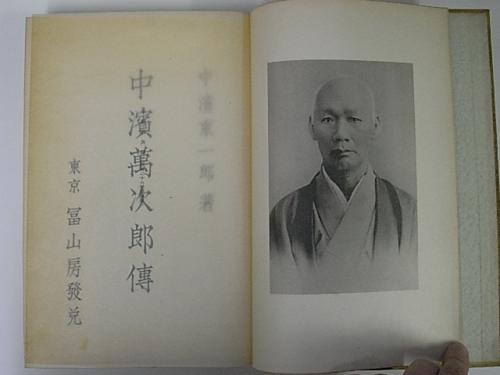 中濱東一郎著
中濱萬次郎傳
東京 冨山房發兌